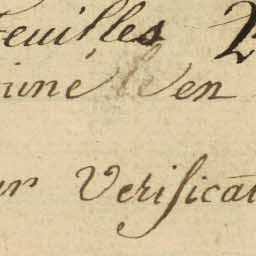 feuilles 2
iiné en
ur Verificat